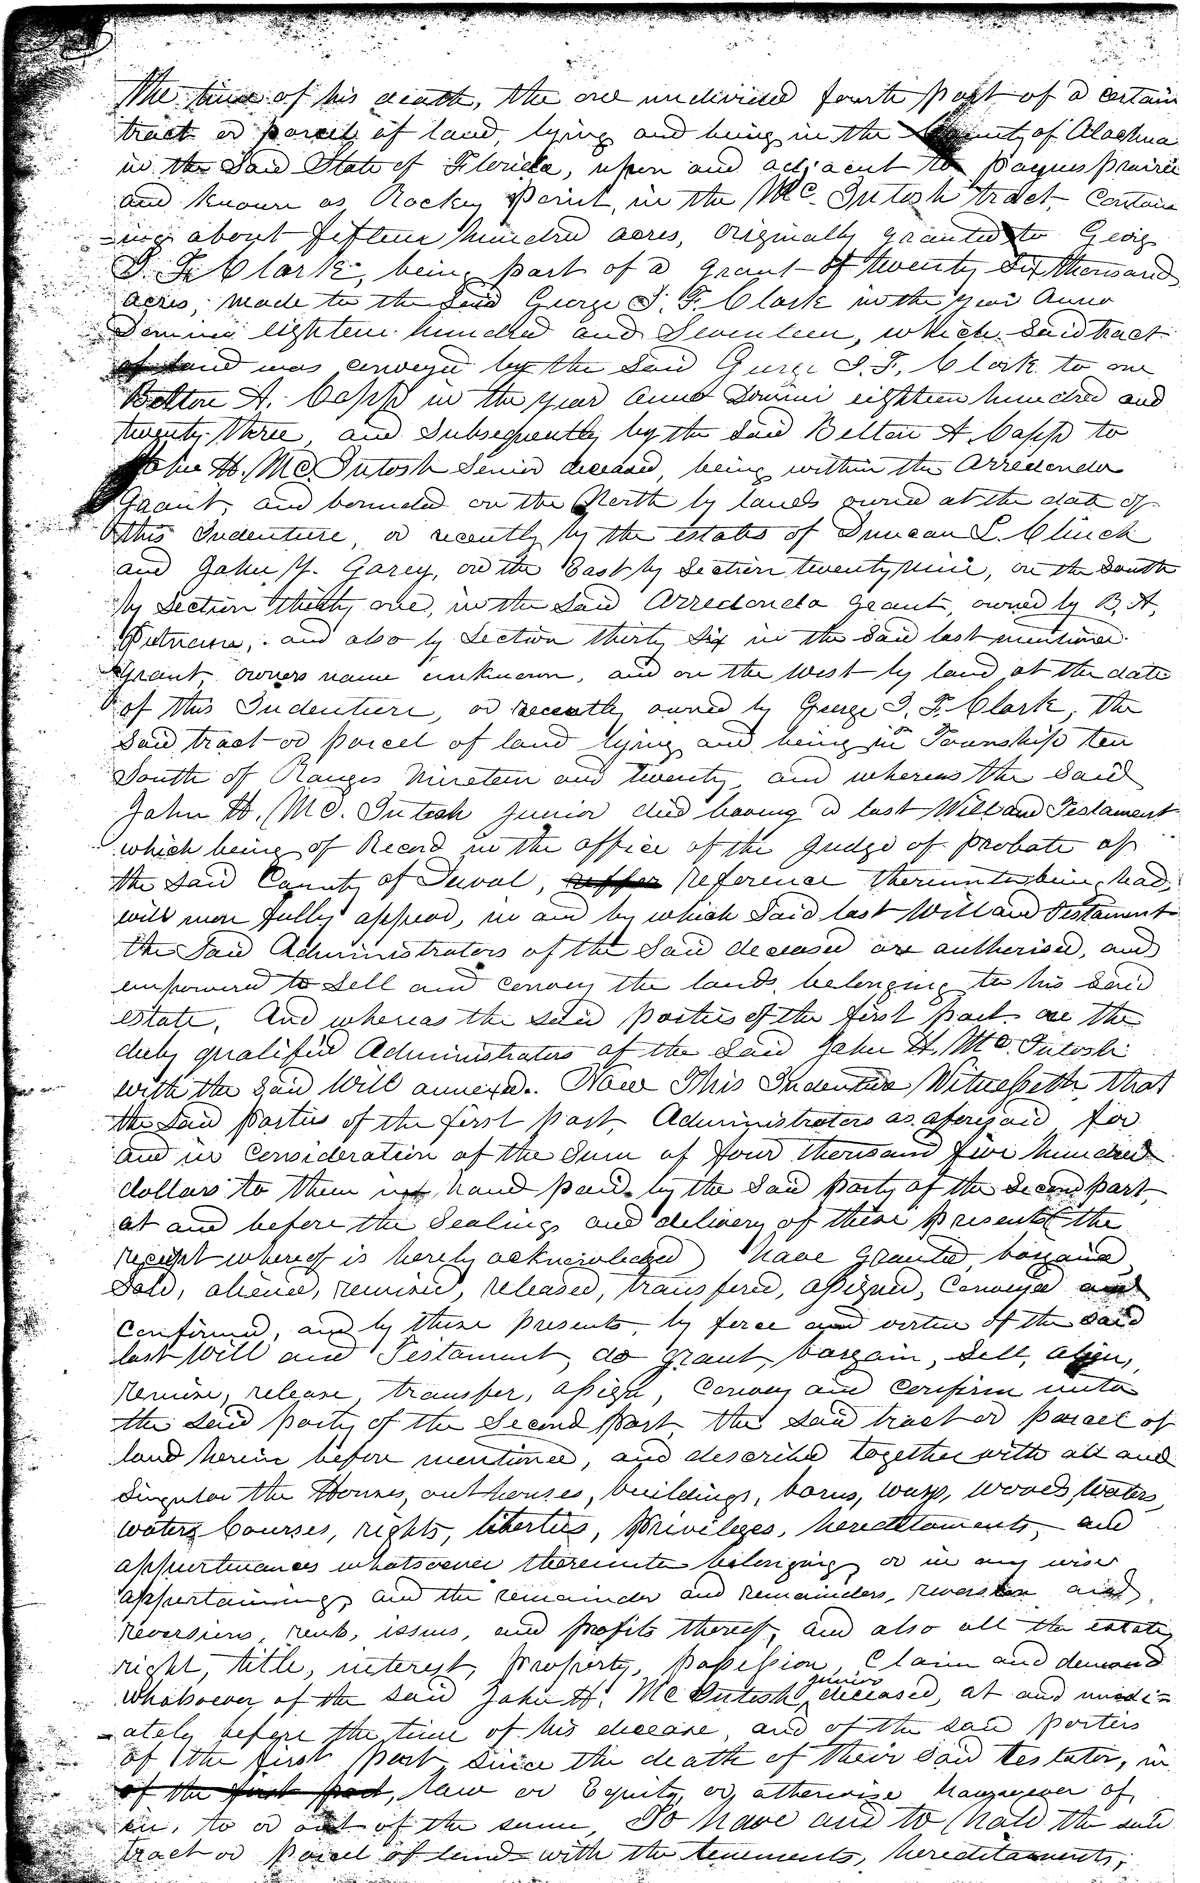 the time of his death, the one undivided fourth part of a certain
tract or parcel of land, lying and being in the County of Alachua
in the Said State of Florida, upon and adjacent to paynes prairie
and known as Rocky Point, in the McIntosh tract, contain
=ing about fifteen hundred acres, originally granted to Georg
I. F. Clark, being part of a grant of twenty Six thousand
acres, made to the Said George I. F. Clark in the year Anno
Domini eighteen hundred and Seventeen, which Said tract
of land was conveyed by the Said George I. F. Clark to one
Belton A. Copp in the year Anno Domini eighteen hundred and
twenty three, and Subsequently by the Said Belton A Copp to
John H. McIntosh Senior deceased, being within the Arredondo
Grant, and bounded on the North by lands owned at the date of
this Indenture, or recently by the estates of Duncan L. Clinch
and John Y. Garey, on the East by Section twenty nine, on the South
by Section thirty one, in the Said Arredondo grant, owned by B. A.
Putnam, and also by Section thirty Six in the Said last mentioned
grant, owners name unknown, and on the west by land at the date
of this Indenture, or recently owned by George I. F. Clark, the
Said tract or parcel of land lying and being in Township ten
South of Ranges Nineteen and twenty, and whereas the Said
John H. McIntosh Junior died having a last Will and Testament
which being of Record in the office of the Judge of Probate of
the Said County of Duval, reffer reference thereunto being had,
will more fully appear, in and by which Said last Will and Testament
the Said Administrators of the Said deceased are authorised, and
empowered to Sell and convey the lands belonging to his Said
estate, And whereas the said parties of the first part are the
duly qualified Administrators of the Said John H. McIntosh
with the Said Will annexed. Now This Indenture Witnesseth, that
the Said parties of the first part, Administrators as aforesaid for
and in consideration of the Sum of four thousand five hundred
dollars to them in hand paid by the Said party of the Second part,
at and before the Sealings and delivery of these presents (the
receipt whereof is hereby acknowledged) have granted, bargained,
Sold, aliened, remised, released, transfered, assigned, Conveyed and
confirmed, and by these presents, by force and virtue of the said
last Will and Testament, do grant, bargain, Sell, align,
remise, release, transfer, assign, convey and confirm unto
the Said party of the Second part, the Said tract or parcel of
land herein before mentioned, and described together with all and
Singular the Houses, out houses, buildings, barns, ways, woods, waters,
waters Courses, rights, liberties, privileges, hereditaments, and
appurtenances whatsoever thereunto belonging or in any wise
appertaining, and the remainder and remainders, reversion and
reversions, rents, issues, and profits thereof, and also all the estate,
right, title, interest, property, possession, Claim and demand
whatsoever of the Said John H. McIntosh, junior deceased, at and imedi=
=ately before the time of his decease, and of the said parties
of the first part, since the death of their said testator, in
of the first part, law or Equity, or otherwise howsoever of,
in, to or out of the same, To have and to hold the said
tract or parcel of land with the tenements, hereditaments,